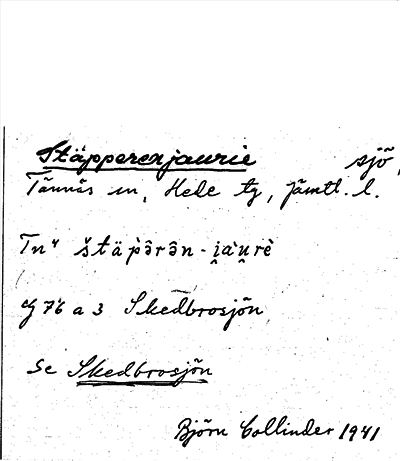 Stäpperenjaurie sjö,
Tännäs sn, Hede tg, Jämtl. l.
Tn4 štäp̀ərən-i̯àu̯rè
Cg 76 a 3 Skedbrosjön
se Skedbrosjön
Björn Collinder 1941